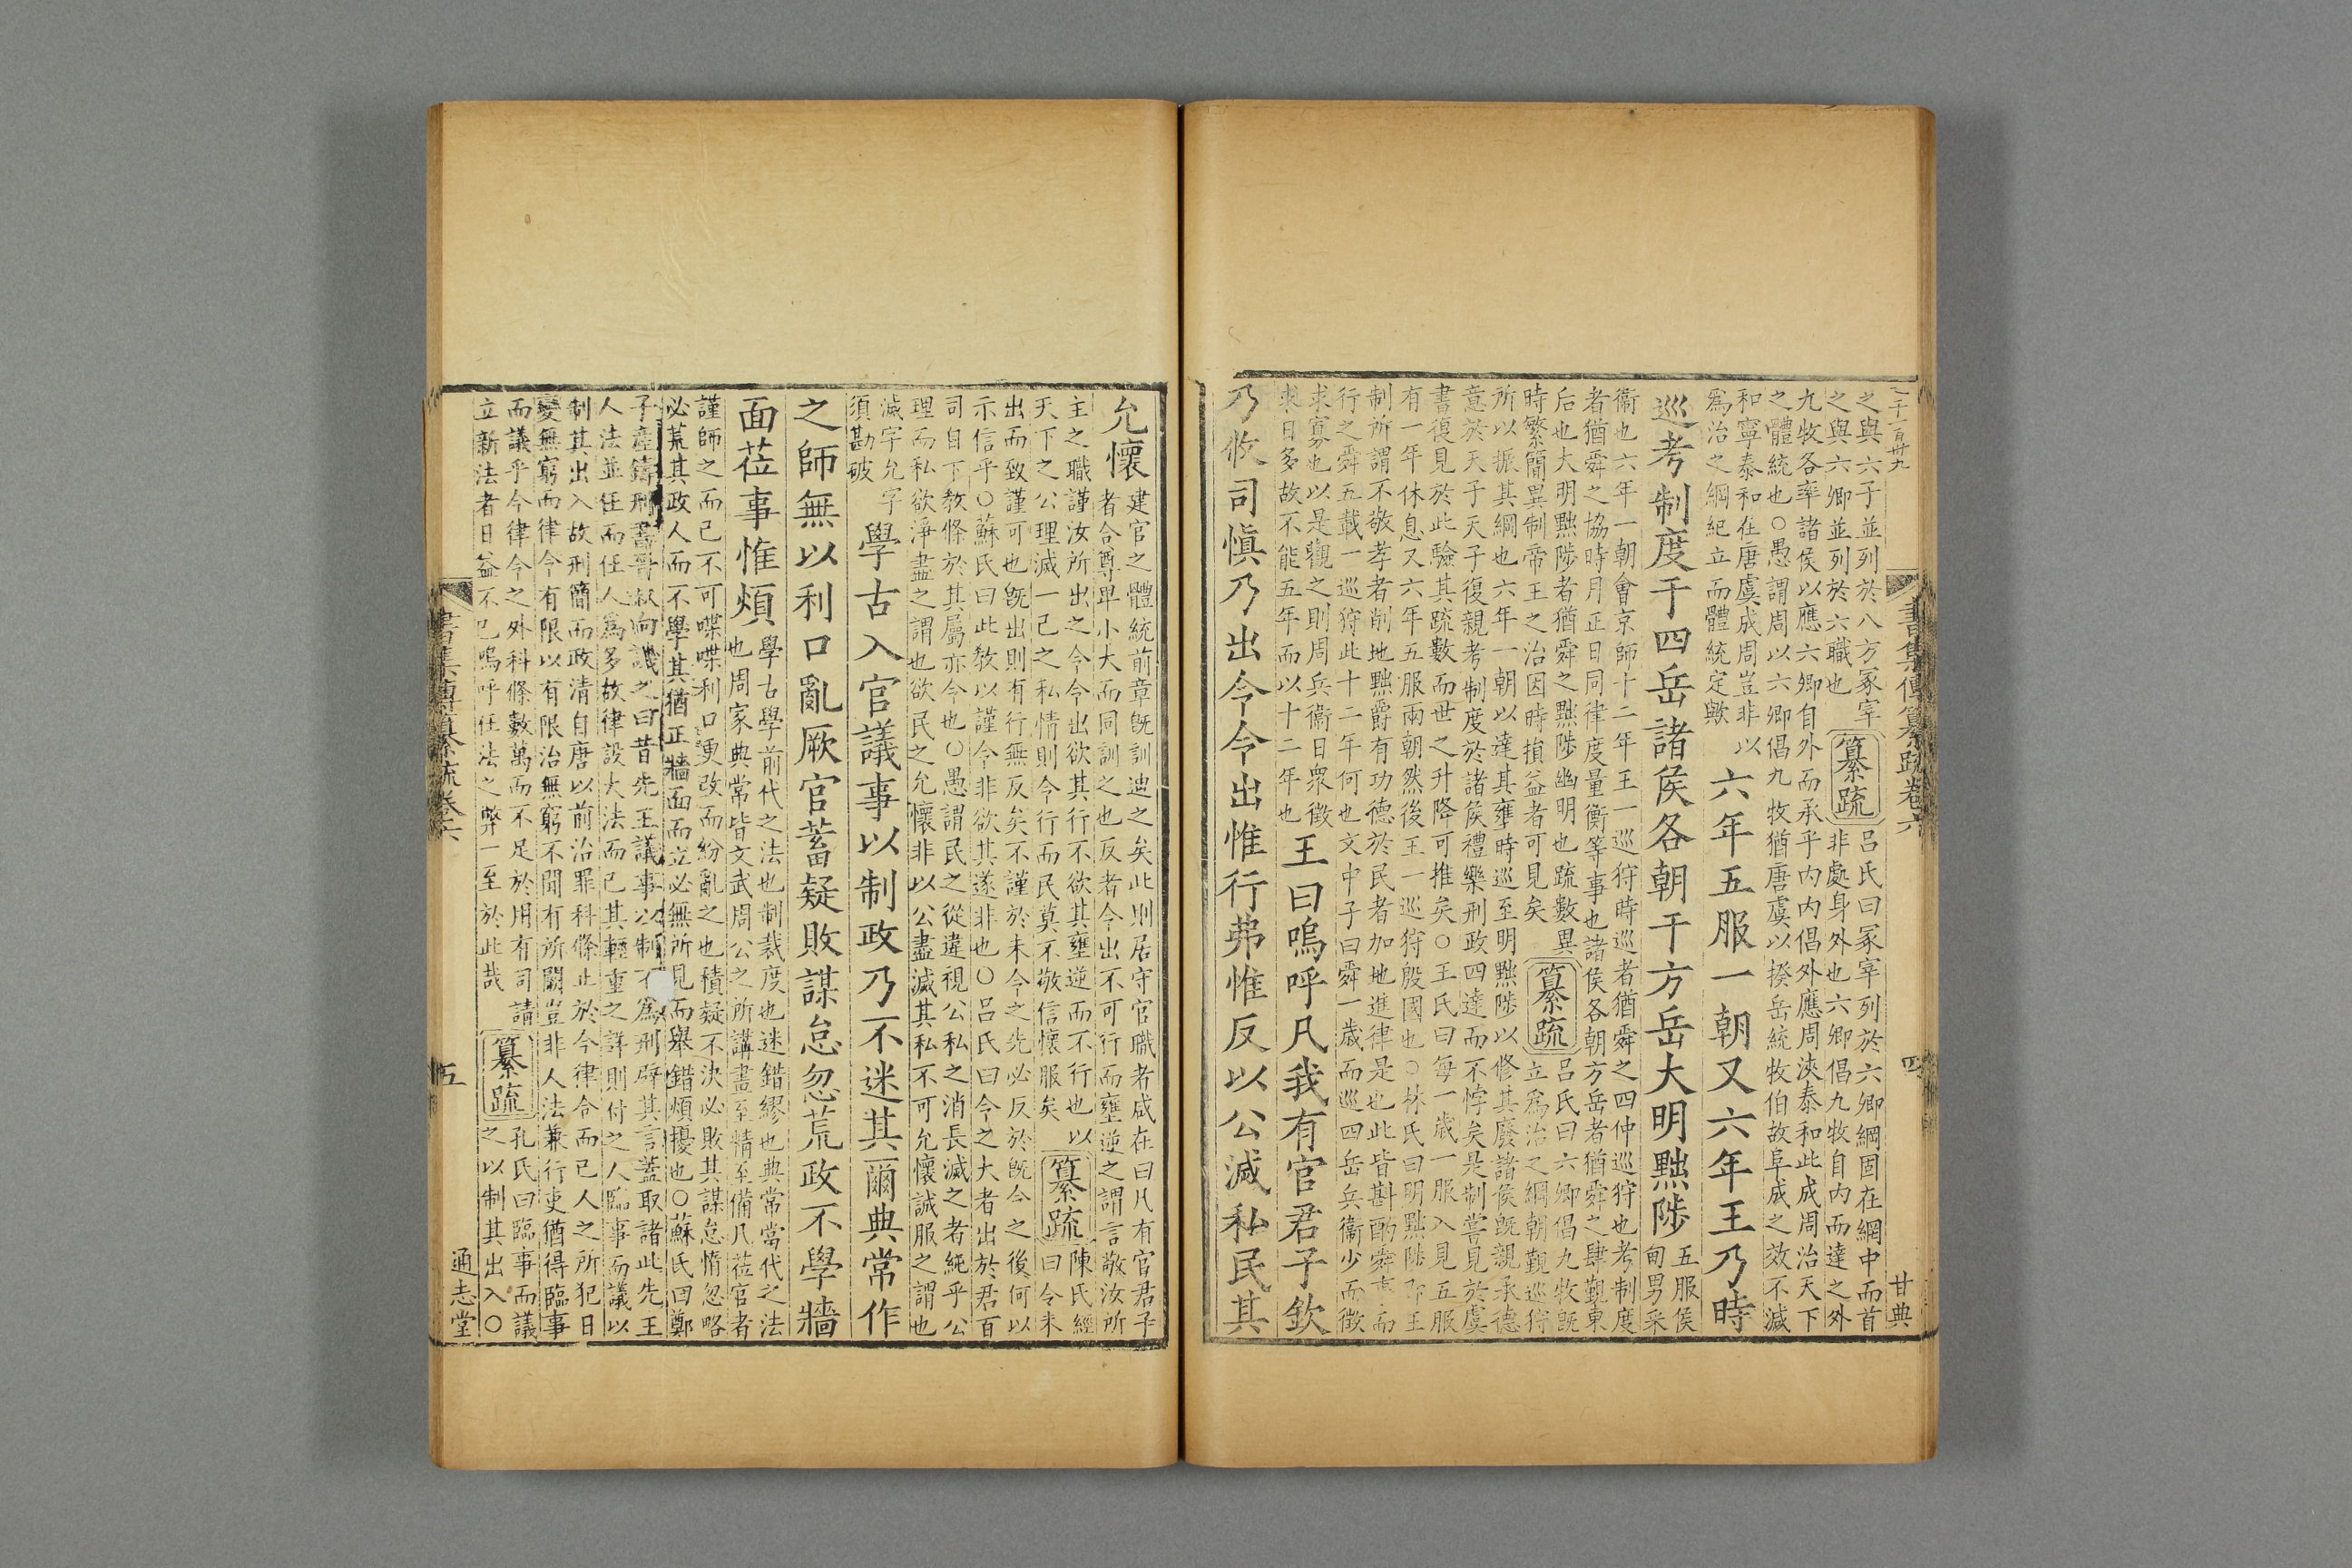 二千一百卅九
書集傳纂疏卷六
四
甘典
之與六子並列於八方冢宰
之與六卿並列於六職也
纂疏
呂氏曰冢宰列於六卿綱固在網中而首
非處身外也六卿倡九牧自内而達之外
九牧各率諸侯以應六卿自外而承乎内内倡外應周浹泰和此成周治天下
之體統也○愚謂周以六卿倡九牧猶唐虞以揆岳統牧伯故阜成之效不減
和寧泰和在唐虞成周豈非以
爲治之綱紀立而體統定歟
六年五服一朝又六年王乃時
巡考制度于四岳諸侯各朝于方岳大明黜陟
五服侯
甸男采
衞也六年一朝會京師十二年王一巡狩時巡者猶舜之四仲巡狩也考制度
者猶舜之協時月正日同律度量衡等事也諸侯各朝方岳者猶舜之肆覲東
后也大明黜陟者猶舜之黜陟幽明也疏數異
時繁簡異制帝王之治因時損益者可見矣
纂疏
呂氏曰六卿倡九牧旣
立爲治之綱朝覲巡狩
所以振其綱也六年一朝以達其壅時巡至明黜陟以修其廢諸侯旣親承德
意於天子天子復親考制度於諸侯禮樂刑政四達而不悖矣是制嘗見於虞
書復見於此驗其疏數而世之升降可推矣○王氏曰每一歲一服入見五服
有一年休息又六年五服兩朝然後王一巡狩殷國也○林氏曰明黜陟卽王
制所謂不敬孝者削地黜爵有功德於民者加地進律是也此皆斟酌舜事而
行之舜五載一巡狩此十二年何也文中子曰舜一歲而巡四岳兵衞少而徵
求寡也以是觀之則周兵衞日衆徵
求日多故不能五年而以十二年也
王曰嗚呼凡我有官君子欽
乃攸司愼乃出令令出惟行弗惟反以公滅私民其
允懷
建官之體統前章旣訓迪之矣此則居守官職者咸在曰凡有官君子
者合尊卑小大而同訓之也反者令出不可行而壅逆之謂言敬汝所
主之職謹汝所出之令令出欲其行不欲其壅逆而不行也以
天下之公理滅一己之私情則令行而民莫不敬信懷服矣
纂疏
陳氏經
曰令未
出而致謹可也旣出則有行無反矣不謹於未令之先必反於旣令之後何以
示信乎○蘇氏曰此敎以謹令非欲其遂非也○呂氏曰令之大者出於君百
司自下敎條於其屬亦令也○愚謂民之從違視公私之消長滅之者純乎公
理而私欲淨盡之謂也欲民之允懷非以公盡滅其私不可允懷誠服之謂也
滅字允字
須勘破
學古入官議事以制政乃不迷其爾典常作
之師無以利口亂厥官蓄疑敗謀怠忽荒政不學牆
面莅事惟煩
學古學前代之法也制裁度也迷錯繆也典常當代之法
也周家典常皆文武周公之所講畫至精至備凡莅官者
謹師之而已不可喋喋利口更改而紛亂之也積疑不決必敗其謀怠惰忽略
必荒其政人而不學其猶正牆面而立必無所見而舉錯煩擾也○蘇氏曰鄭
子產鑄刑書晉叔向譏之曰昔先王議事以制不爲刑辟其言蓋取諸此先王
人法並任而任人爲多故律設大法而已其輕重之詳則付之人臨事而議以
制其出入故刑簡而政清自唐以前治罪科條止於今律令而已人之所犯日
變無窮而律令有限以有限治無窮不聞有所闕豈非人法兼行吏猶得臨事
而議乎今律令之外科條數萬而不足於用有司請
立新法者日益不已嗚呼任法之弊一至於此哉
纂疏
孔氏曰臨事而議
之以制其出入○
書集傳纂疏卷六
五
通志堂